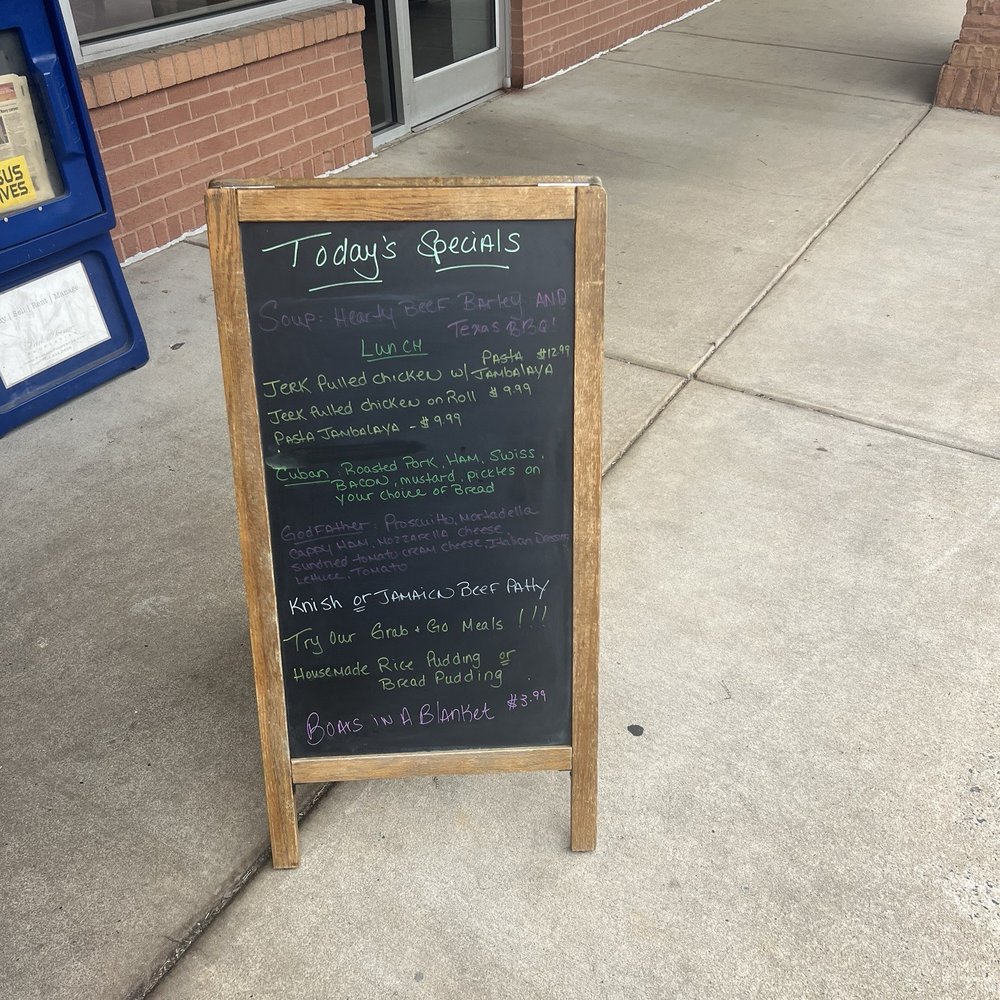 Today's Specials
Soup: Hearty Beef Barley AND
Texas BBQ!
Lunch
Jerk Pulled chicken w/ Pasta $12.99
Jambalaya
Jerk Pulled chicken on Roll $9.99
Pasta Jambalaya - $9.99
Cuban: Roasted Pork, Ham, Swiss,
Bacon, mustard, pickles on
your choice of Bread
Godfather: Proscuitto, Mortadella
Cappy Ham, Mozzarella cheese
sundried tomato cream cheese, Italian Dressing
Lettuce, Tomato
Knish or Jamaicn Beef Patty
Try Our Grab + Go Meals !!!
Housemade Rice Pudding or
Bread Pudding
Boars in A Blanket $3.99
SUS
VES
Sell | Rent | Manage